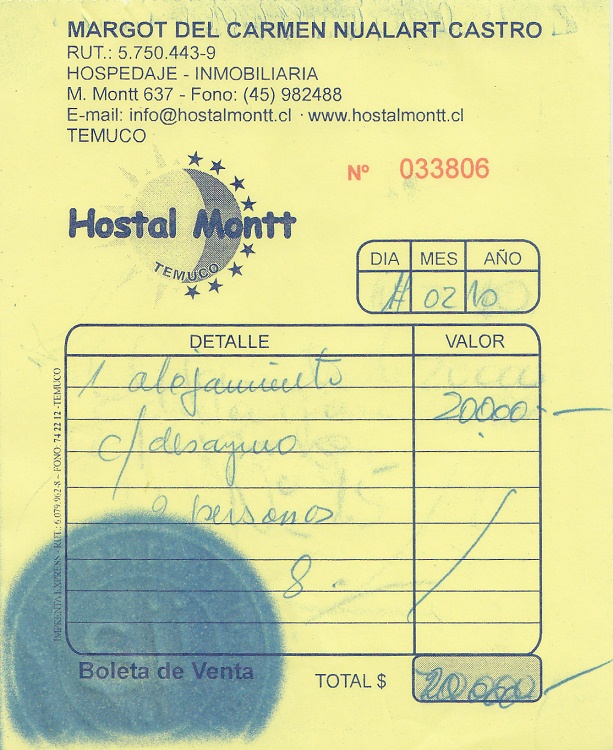 MARGOT DEL CARMEN NUALART CASTRO
RUT.: 5.750.443-9
HOSPEDAJE - INMOBILIARIA
M. Montt 637 - Fono: (45) 982488
E-mail: info@hostalmontt.cl · www.hostalmontt.cl
TEMUCO
Nº 033806
Hostal Montt
TEMUCO
DIA MES AÑO
02 10
DETALLE VALOR
1 alojamiento
20000.-
c/ desayuno
2 personas
8.
Boleta de Venta TOTAL $ 20000
IMPRENTA EXPRESS - RUT.: 6.079.962-8 - FONO: 74 22 12 - TEMUCO